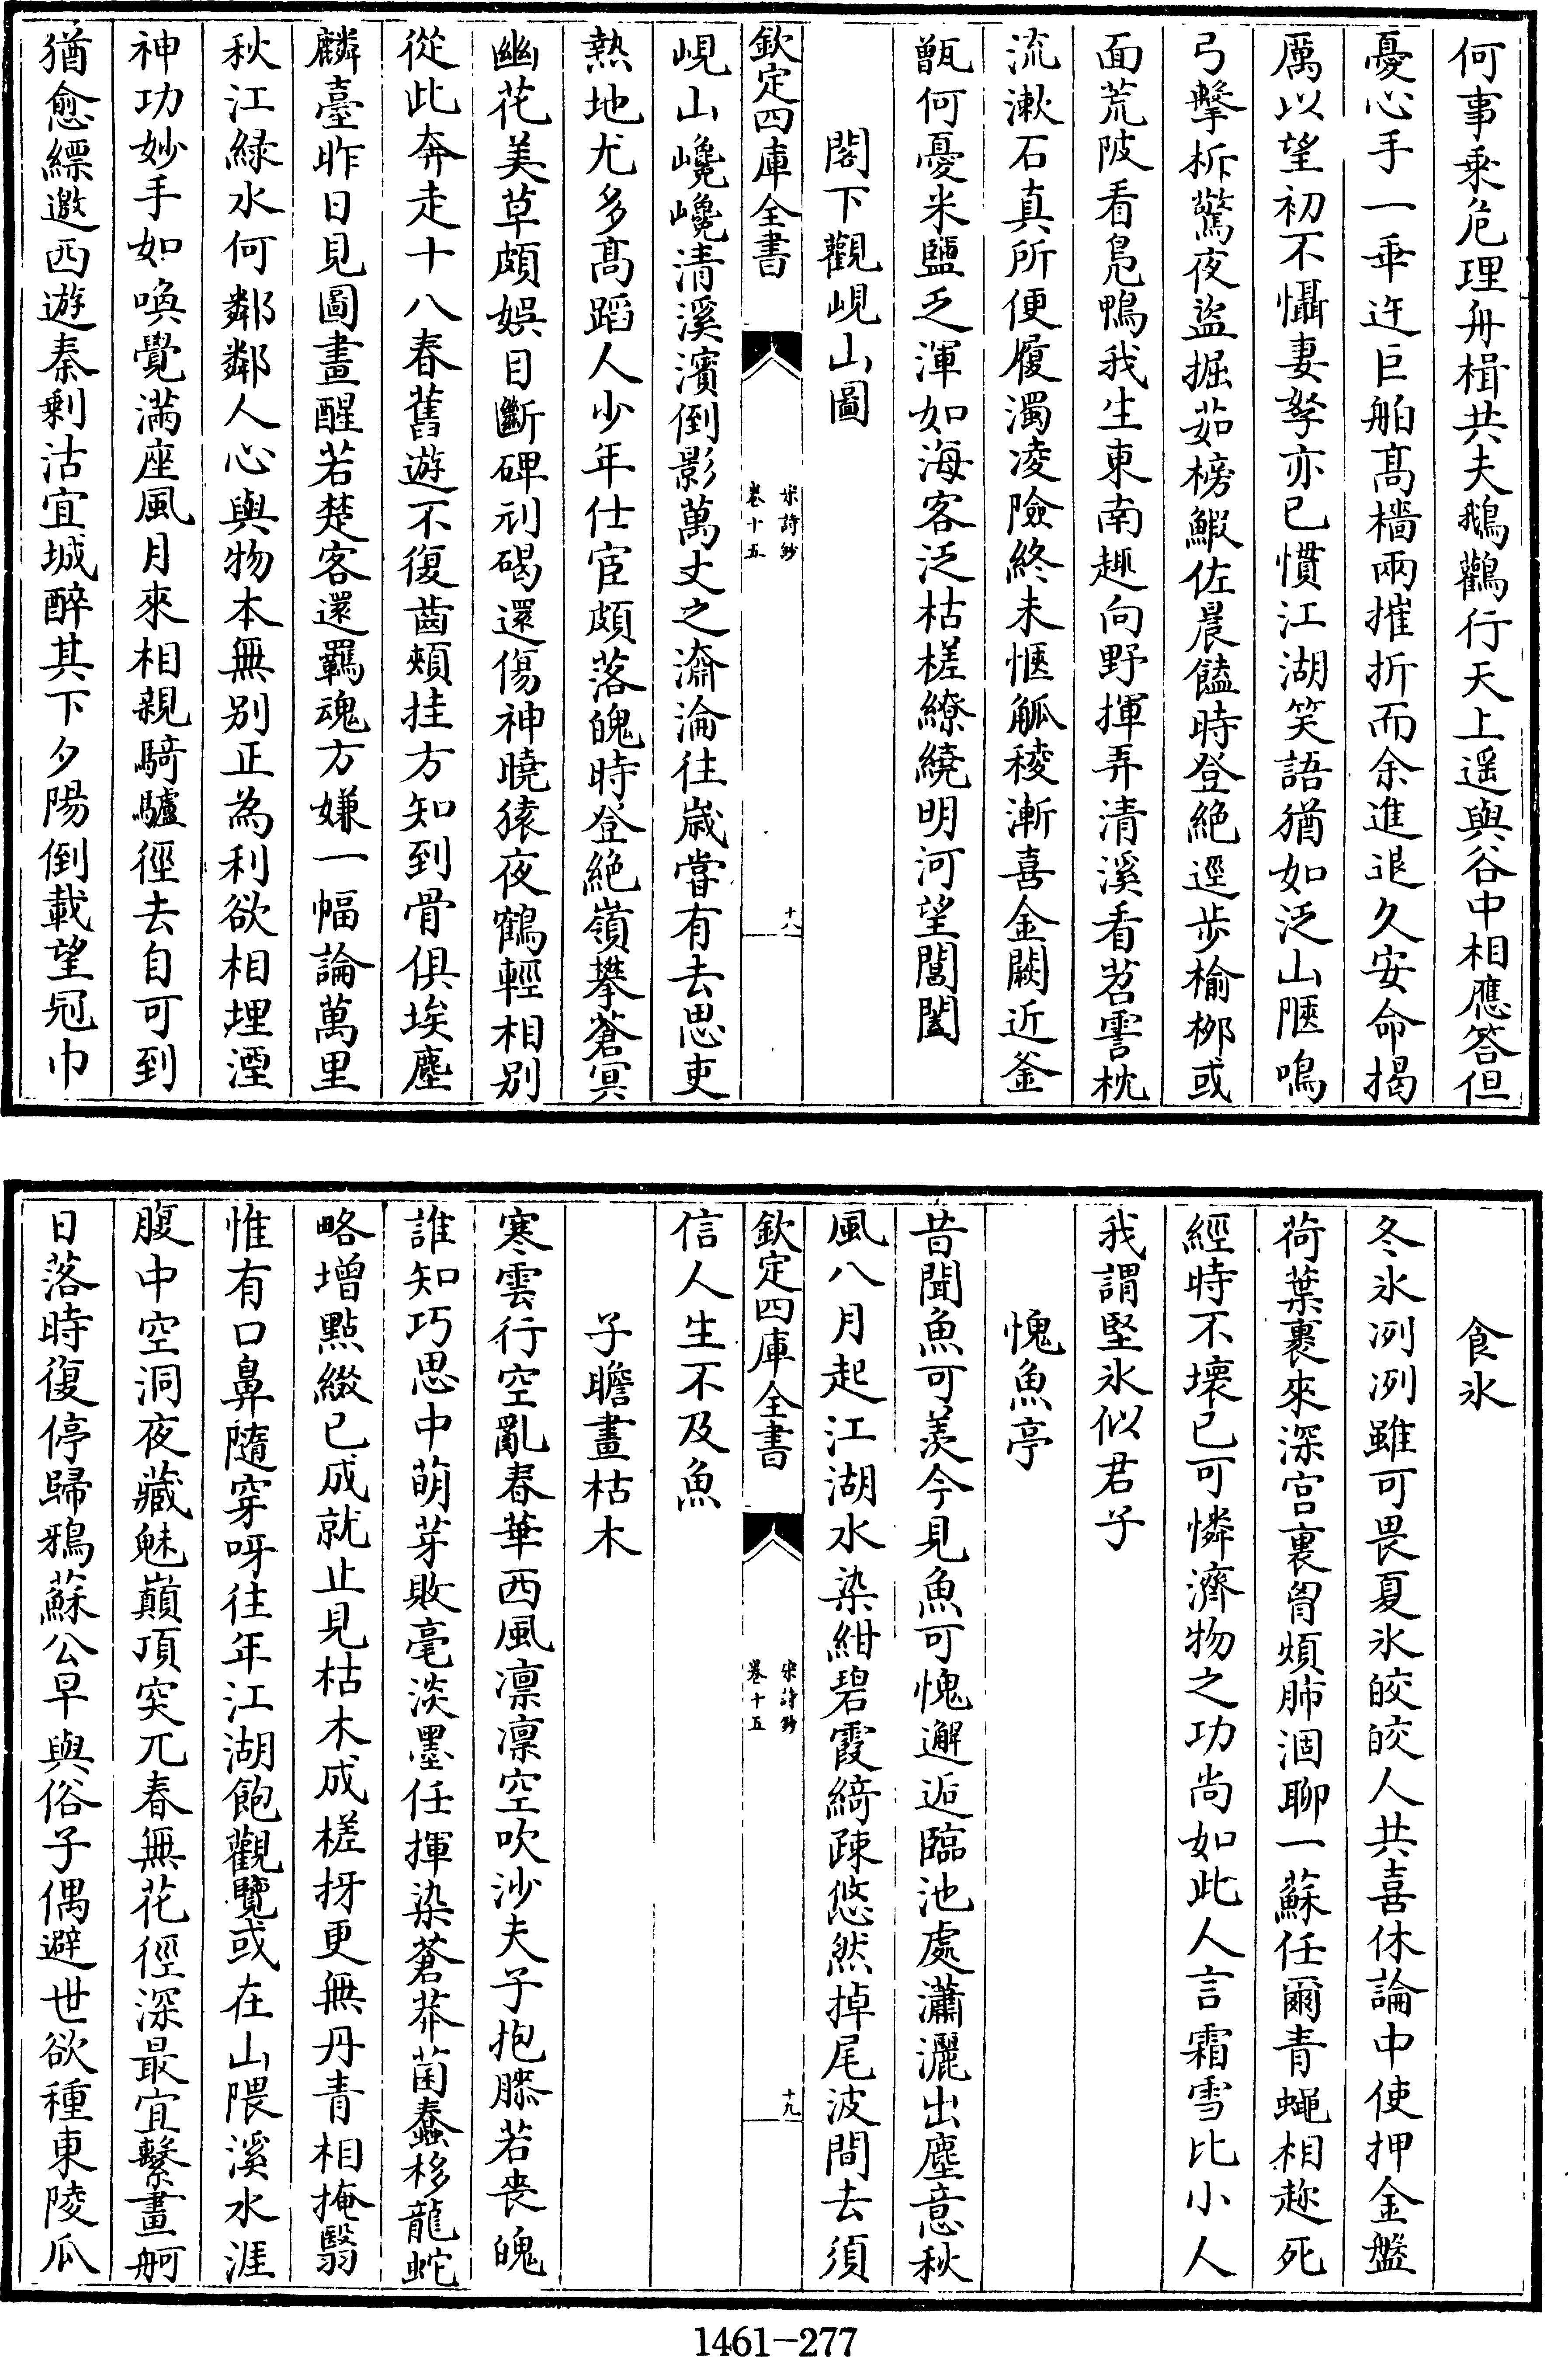 何事乘危理舟楫共夫鵝鸛行天上遥與谷中相應答但
憂心手一乖迕巨舶髙檣兩摧折而余進退久安命揭
厲以望初不懾妻孥亦已慣江湖笑語猶如泛山陿鳴
弓擊柝驚夜盜掘茹榜鰕佐晨饁時登絶逕步榆栁或
面荒陂看鳬鴨我生東南趣向野揮弄清溪看苕霅枕
流漱石真所便履濁凌險終未愜觚稜漸喜金闕近釜
甑何憂米鹽乏渾如海客泛枯槎繚繞明河望閶闔
閣下觀峴山圖
欽定四庫全書
宋詩鈔
卷十五
十八
峴山巉巉清溪濱倒影萬丈之漪淪往歲嘗有去思吏
熱地尤多髙蹈人少年仕宦頗落魄時登絶嶺攀蒼冥
幽花美草頗娯目斷碑刓碣還傷神曉猿夜鶴輕相别
從此奔走十八春舊遊不復齒頰挂方知到骨俱埃塵
麟臺昨日見圖畫醒若楚客還羈魂方嫌一幅論萬里
秋江緑水何鄰鄰人心與物本無别正為利欲相埋湮
神功妙手如喚覺滿座風月來相親騎驢徑去自可到
猶愈縹邈西遊秦剩沽宜城醉其下夕陽倒載望冠巾
食氷
冬氷冽冽雖可畏夏氷皎皎人共喜休論中使押金盤
荷葉裹來深宫裏胷煩肺涸聊一蘇任爾青蠅相趂死
經時不壞已可憐濟物之功尚如此人言霜雪比小人
我謂堅氷似君子
愧魚亭
昔聞魚可羨今見魚可愧邂逅臨池處瀟灑出塵意秋
風八月起江湖水染紺碧霞綺疎悠然掉尾波間去須
欽定四庫全書
宋詩鈔
卷十五
十九
信人生不及魚
子瞻畫枯木
寒雲行空亂春華西風凛凛空吹沙夫子抱膝若喪魄
誰知巧思中萌芽敗毫淡墨任揮染蒼莽菌蠢移龍蛇
略增點綴已成就止見枯木成槎枒更無丹青相掩翳
惟有口鼻隨穿呀往年江湖飽觀覽或在山隈溪水涯
腹中空洞夜藏魅巔頂突兀春無花徑深最宜繫畫舸
日落時復停歸鴉蘇公早與俗子偶避世欲種東陵瓜
1461-277